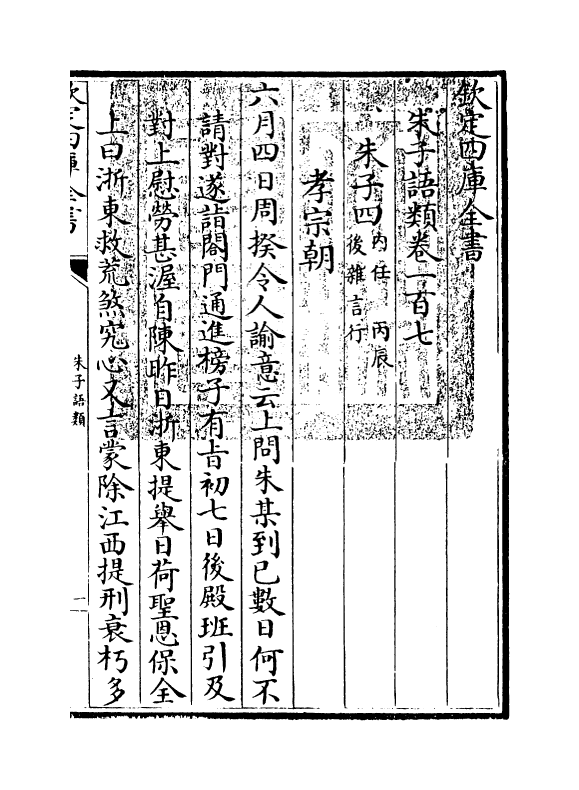 欽定四庫全書
朱子語類卷一百七
朱子四內任 丙辰後雜言行
孝宗朝
六月四日周揆令人諭意云上問朱某到已數日何不
請對遂詣閤門通進榜子有旨初七日後殿班引及
對上慰勞甚渥自陳昨日浙東提舉日荷聖恩保全
上曰浙東救荒煞究心又言蒙除江西提刑衰朽多
欽定四庫全書
朱子語類
一